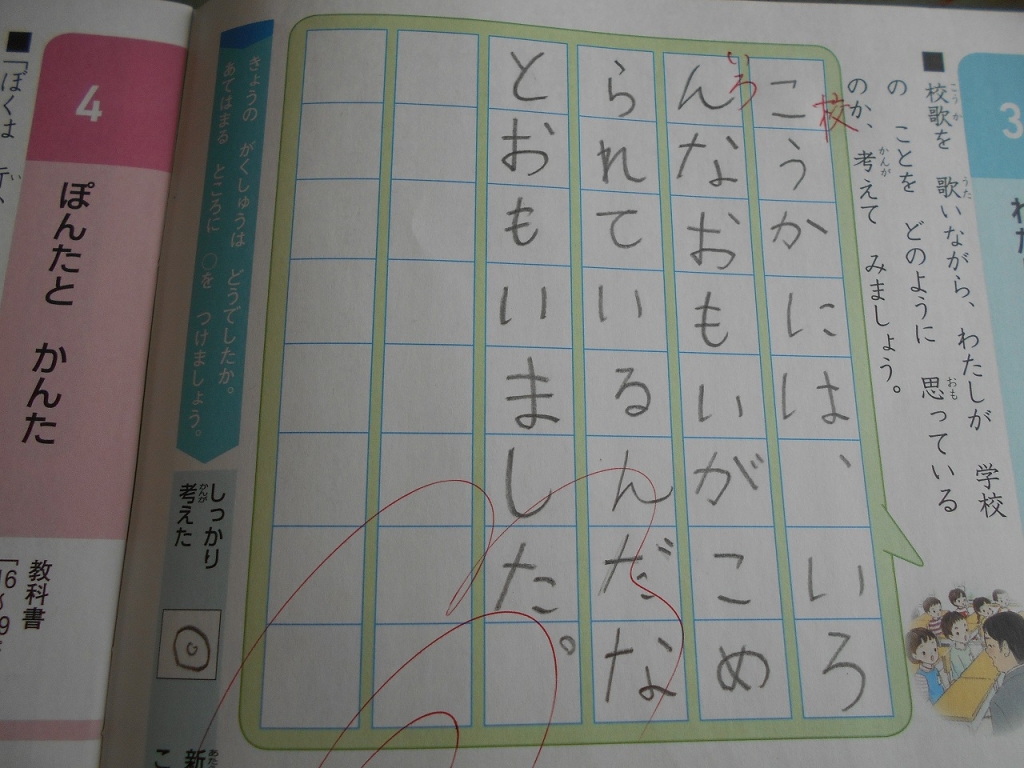 3
わた
■ 校歌を 歌いながら、わたしが 学校
こうか うた
の ことを どのように 思っている
おも
のか、考えて みましょう。
かんが
校
こうかには、いろ
いろ
んなおもいがこめ
られているんだな
とおもいました。
きょうの がくしゅうは どうでしたか。
あてはまる ところに ○を つけましょう。
しっかり
考えた
かんが
◎
新
あたら
こ
4
ぽんたと かんた
教科書
■「ぼくは